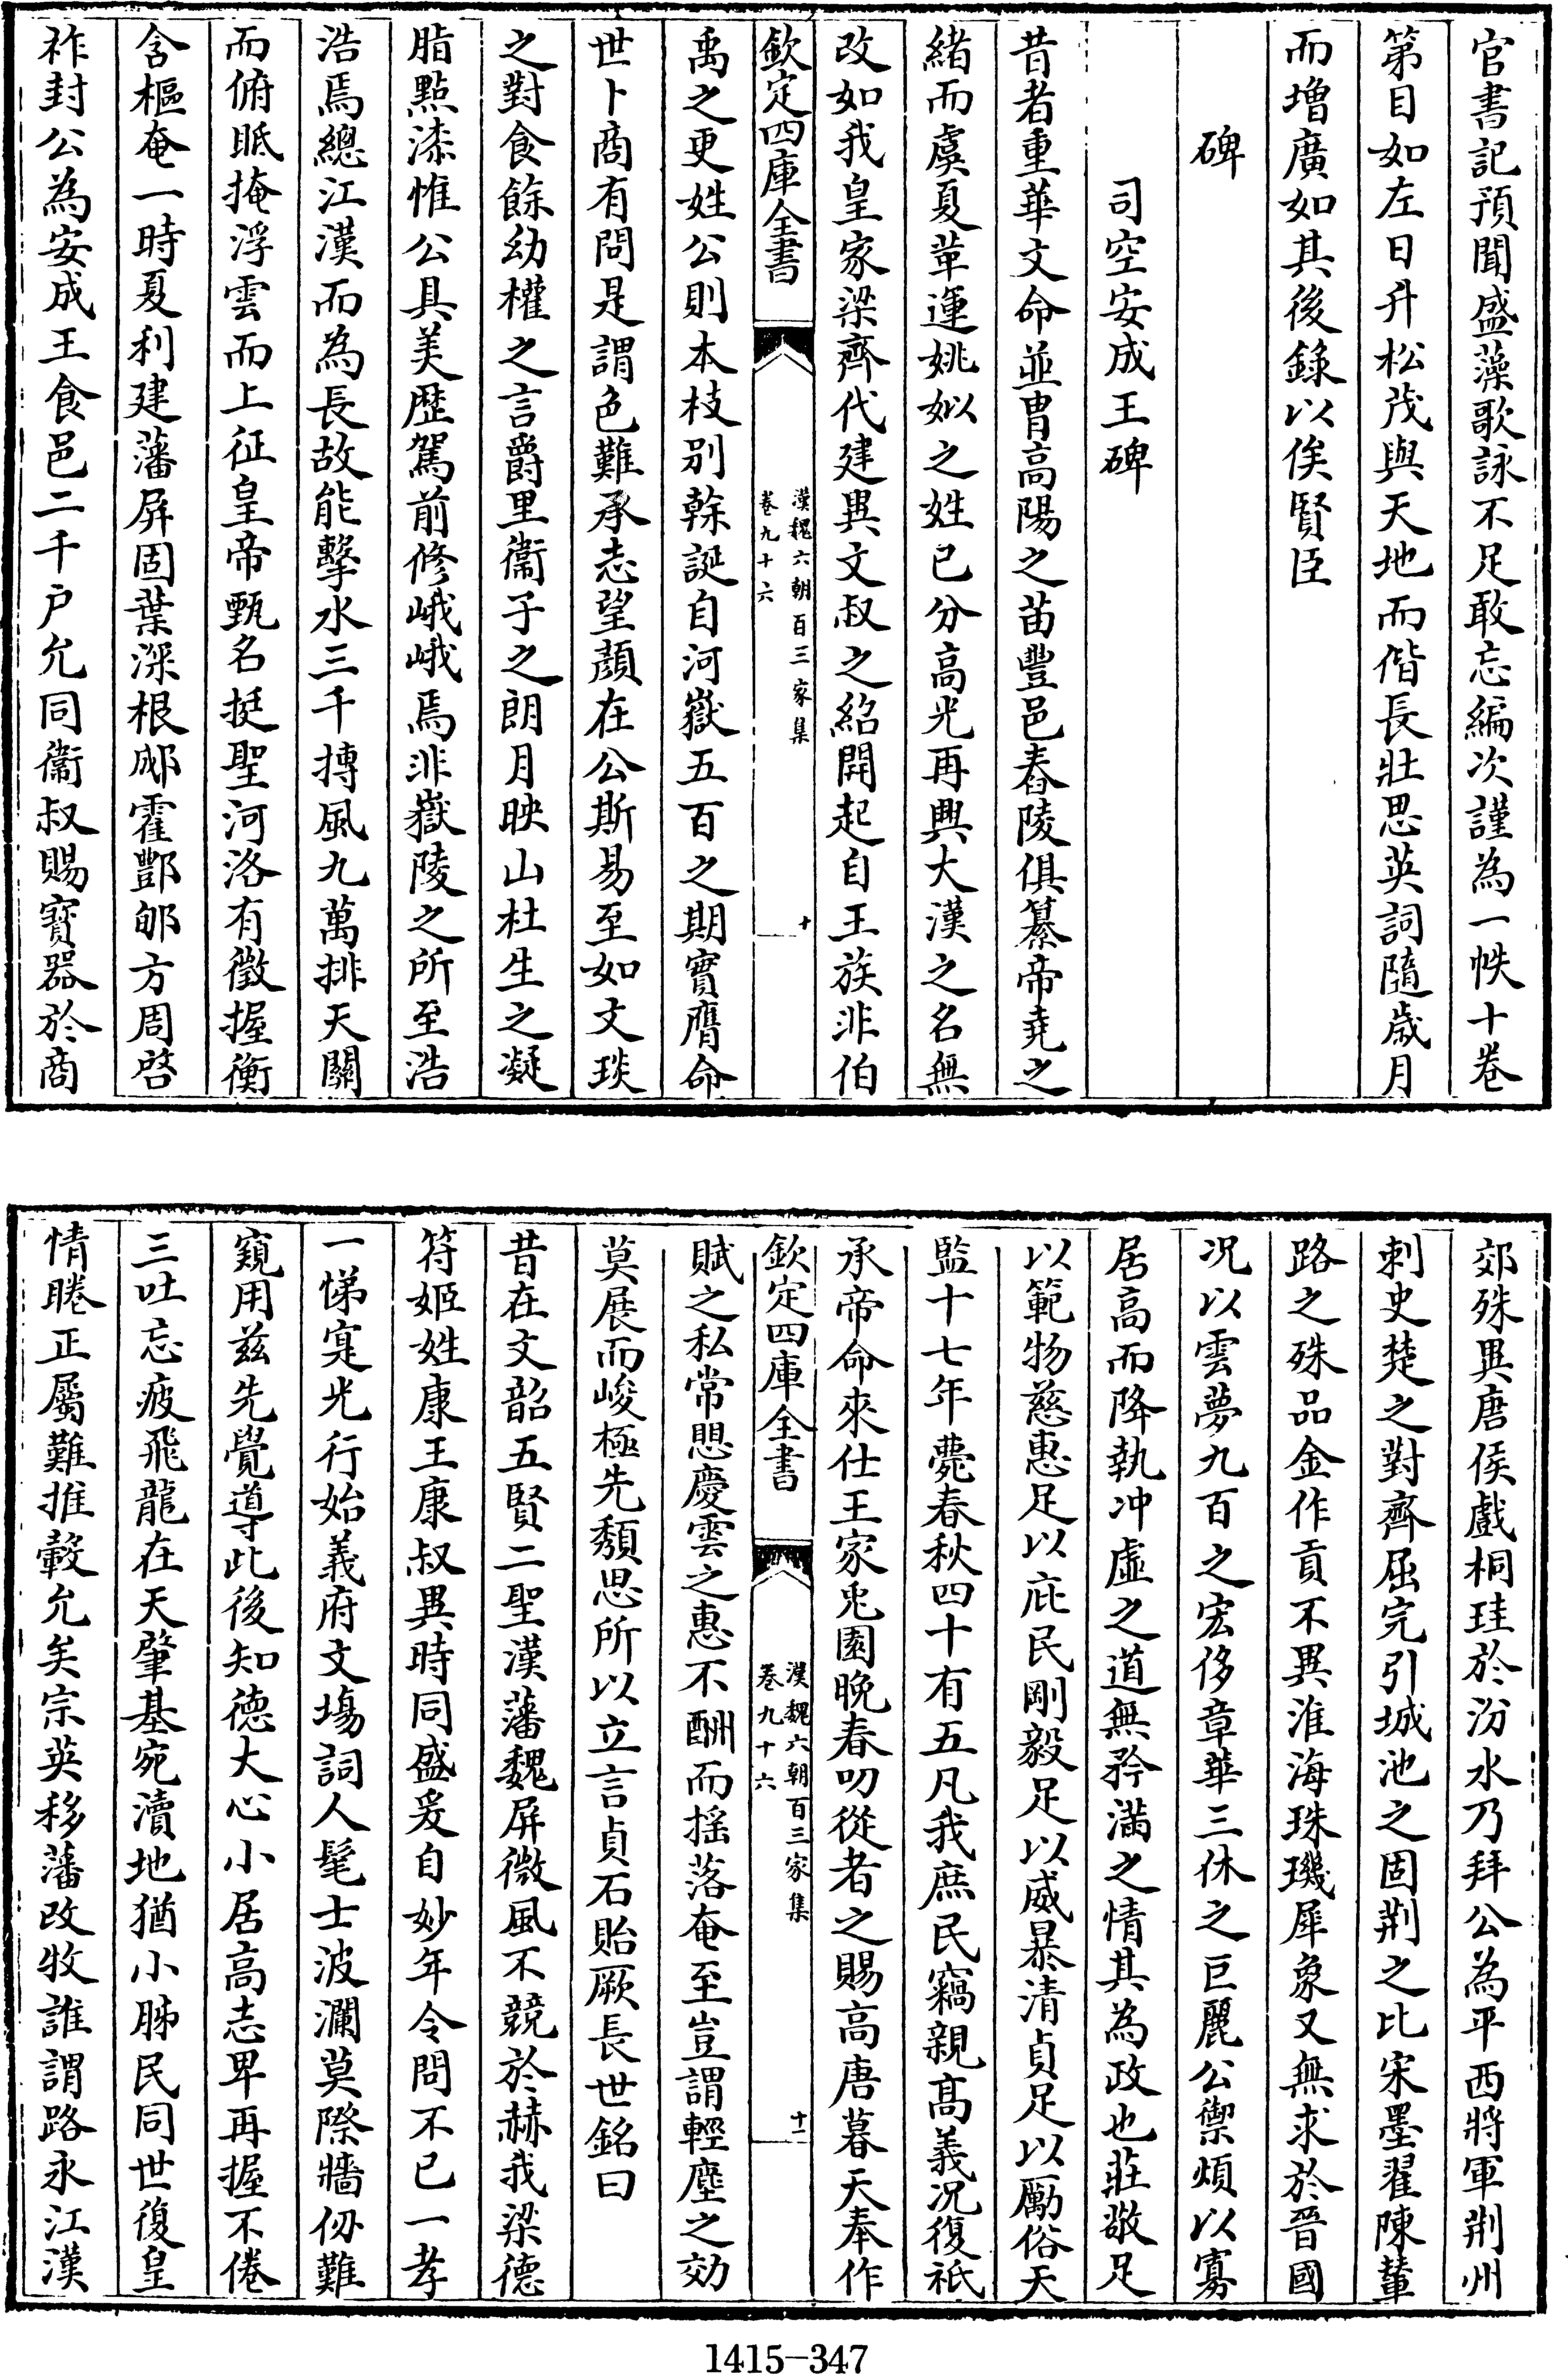 官書記預聞盛藻歌詠不足敢忘編次謹為一帙十卷
第目如左日升松茂與天地而偕長壯思英詞隨歲月
而增廣如其後錄以俟賢臣
碑
司空安成王碑
昔者重華文命並胄高陽之苗豐邑舂陵俱纂帝堯之
緒而虞夏革運姚姒之姓已分高光再興大漢之名無
改如我皇家梁齊代建異文叔之紹開起自王族非伯
欽定四庫全書
漢魏六朝百三家集
卷九十六
十
禹之更姓公則本枝別幹誕自河嶽五百之期實膺命
世卜商有問是謂色難承志望顏在公斯易至如文琰
之對食餘幼權之言爵里衞子之朗月映山杜生之凝
脂點漆惟公具美歷駕前修峨峨焉非嶽陵之所至浩
浩焉總江漢而為長故能擊水三千摶風九萬排天關
而俯眡掩浮雲而上征皇帝甄名挺聖河洛有徵握衡
含樞奄一時夏利建藩屏固葉深根郕霍酆郇方周啓
祚封公為安成王食邑二千户允同衞叔賜寳器於商
郊殊異唐侯戲桐珪於汾水乃拜公為平西將軍荆州
刺史楚之對齊屈完引城池之固荆之比宋墨翟陳輦
路之殊品金作貢不異淮海珠璣犀象又無求於晉國
况以雲夢九百之宏侈章華三休之巨麗公禦煩以寡
居高而降執冲虛之道無矜滿之情其為政也莊敬足
以範物慈惠足以庇民剛毅足以威暴清貞足以厲俗天
監十七年薨春秋四十有五凡我庶民竊親髙義况復祇
承帝命來仕王家兎園晚春叨從者之賜高唐暮天奉作
欽定四庫全書
漢魏六朝百三家集
卷九十六
十一
賦之私常思慶雲之惠不酬而摇落奄至豈謂輕塵之効
莫展而峻極先頽思所以立言貞石貽厥長世銘曰
昔在文韶五賢二聖漢藩魏屏微風不競於赫我梁德
符姬姓康王康叔異時同盛爰自妙年令問不已一孝
一悌寔光行始義府文塲詞人髦士波瀾莫際牆仞難
窺用兹先覺導此後知德大心小居高志卑再握不倦
三吐忘疲飛龍在天肇基宛瀆地猶小腆民同世復皇
情睠正屬難推轂允矣宗英移藩改牧誰謂路永江漢
1415-347